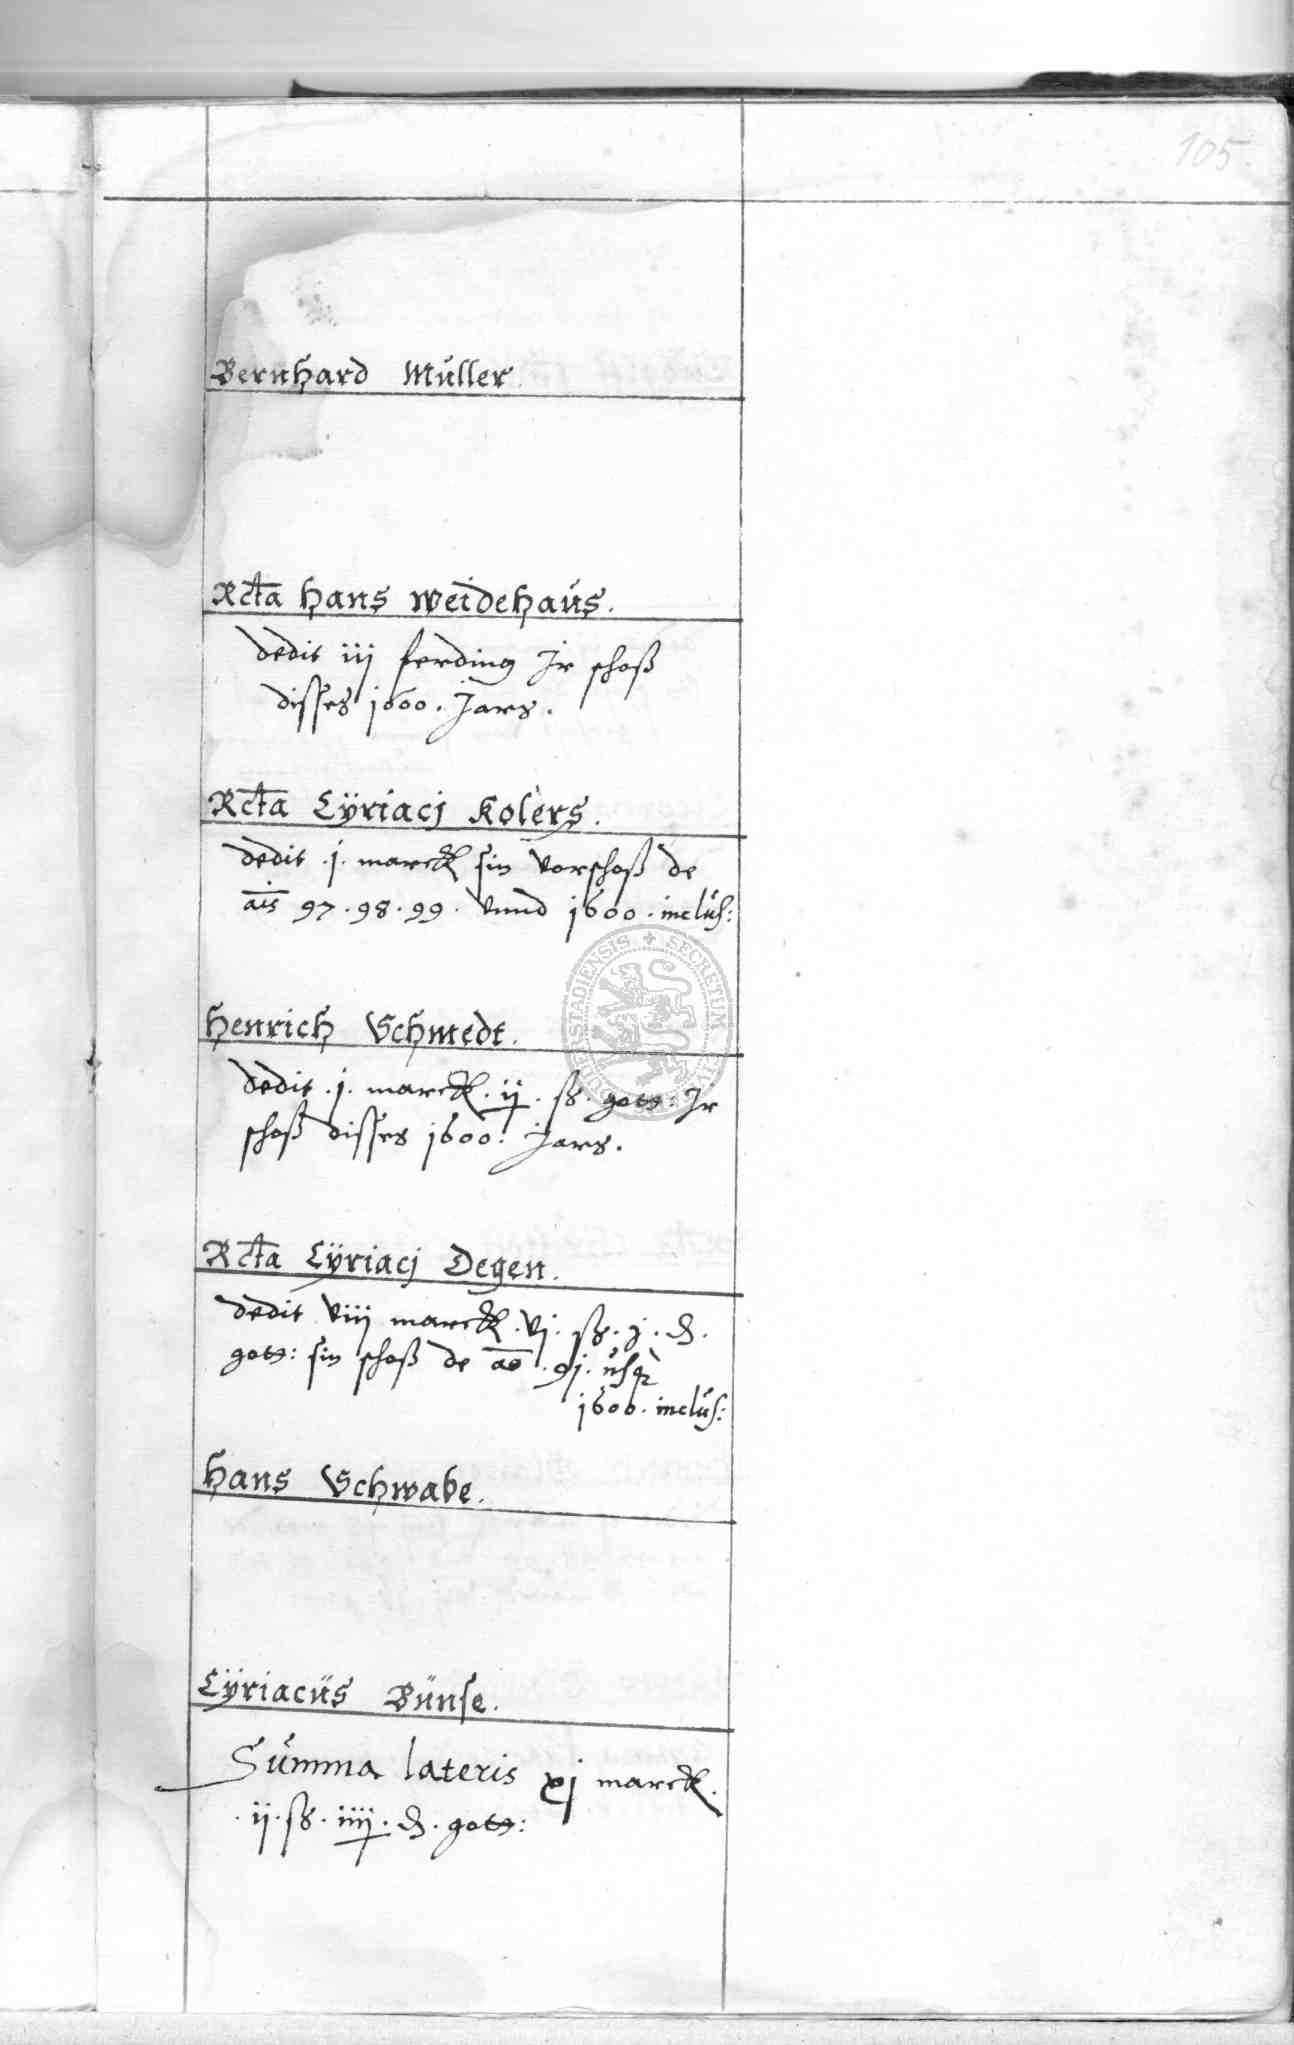 105
Bernhard Müller.
Rcta Hans Weidehaus.
dedit iij ferding Jr schoß
disses 1600. Jars.
Rcta Cÿriacj Kolers.
dedit .j. marck sin vorschoß de
ais 97.98.99. vnnd 1600. inclus:
SECRETUM
Henrich Schmedt.
dedit .j. marck. ij. ß. gots: Jr
schoß disses 1600. Jars.
Rcta Cÿriacj Degen.
dedit viij marck. vj. ß. j. ₰.
gots: sin schoß de ao .91. usq
1600. inclus:
Hans Schwabe.
Cÿriacus Bunse.
Summa lateris xj marck.
.ij. ß. iiij. ₰. gots: